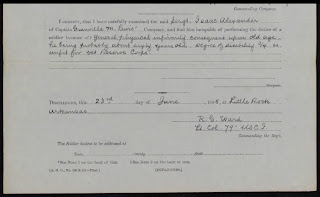 Commanding Company.
I CERTIFY, that I have carefully examined the said Sergt. Isaac Alexander
of Captain Granville M. Lewis' Company, and find him incapable of performing the duties of a
soldier because of General physical infirmity consequent upon old age.
he being probably about sixty years old. Degree of disability 3/4. is
unfit for Vet Reserve Corps.
Surgeon.
DISCHARGED, this 23rd day of June 1865, at Little Rock
Arkansas
R. G. Ward
Lt Col 79" USCT
Commanding the Reg't.
The Soldier desires to be addressed at
Town County State
(DUPLICATES.)